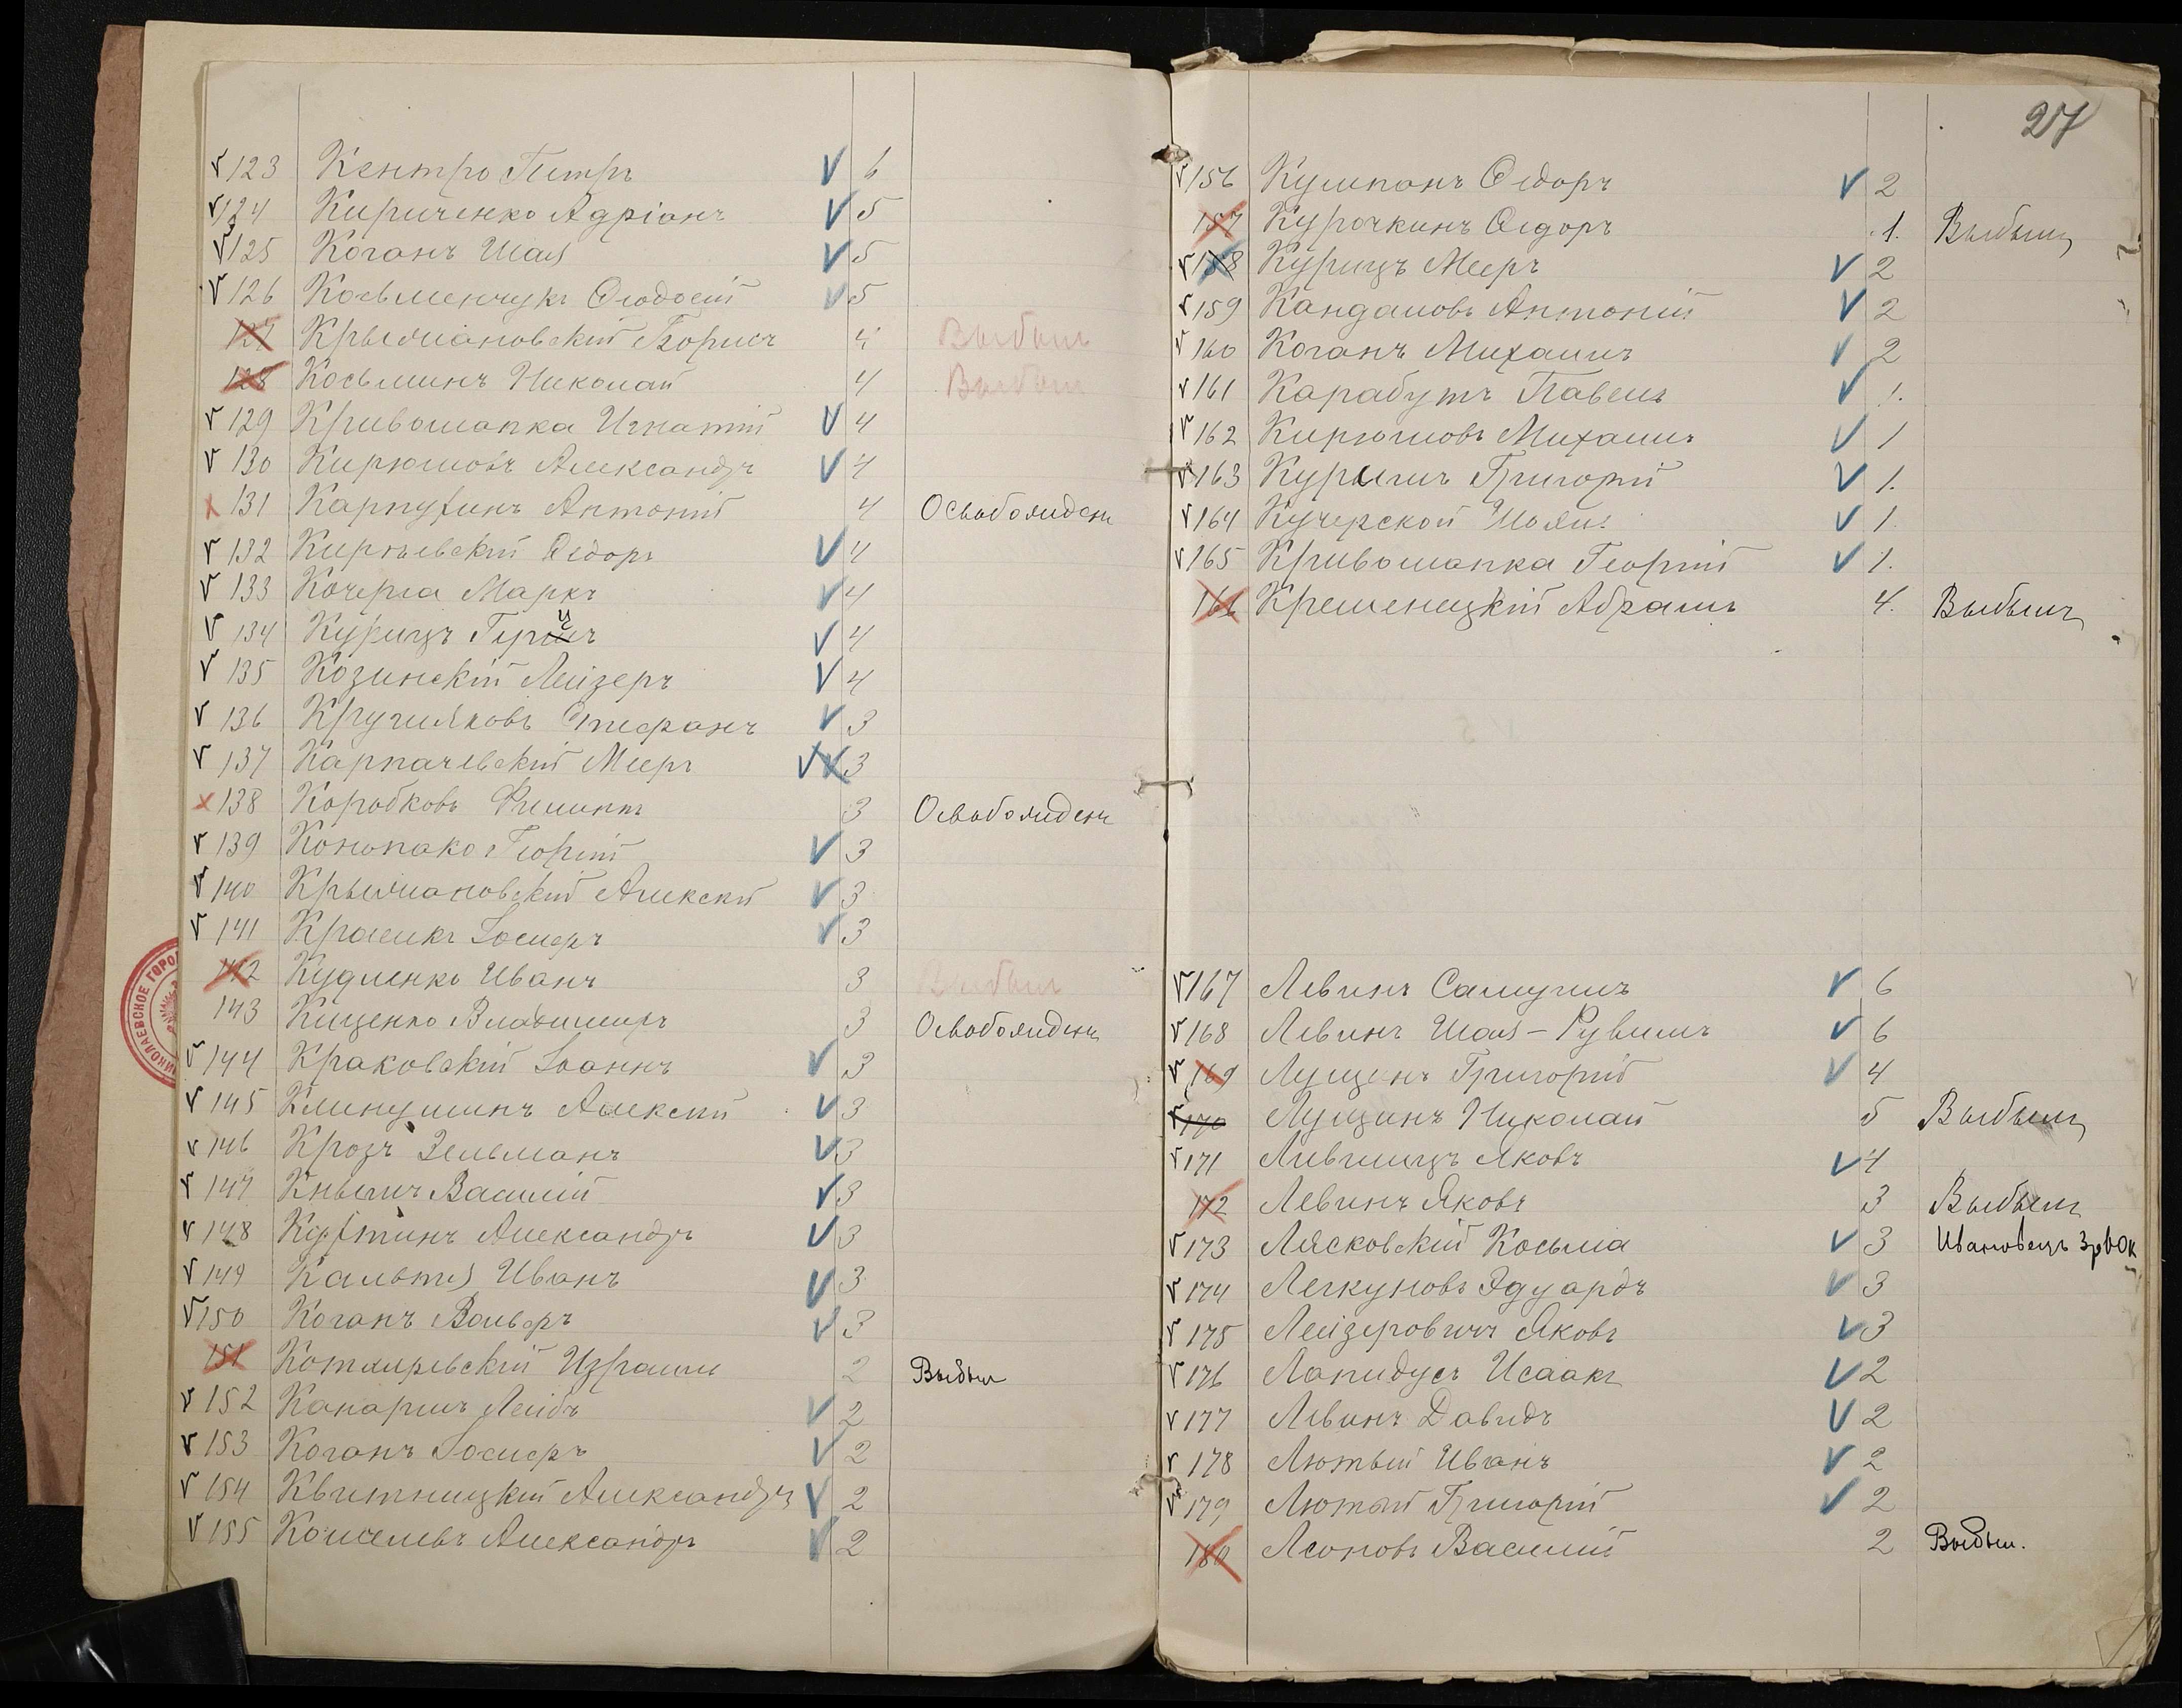 123 Кентро Петръ V 6
V 124 Кириченко Адріанъ V 5
V 125 Коганъ Шая V 5
V 126 Косьменчукъ Ѳеодосій V 5
127 Крыжановскій Борисъ 4 Выбылъ
128 Косьминъ Николай 4 Выбыл
V 129 Кривошапка Игнатій V 4
V 130 Кирюшовъ Александръ V 4
131 Карпухинъ Антоній 4 Освобожденъ
V 132 Кирѣевскій Ѳедоръ V 4
V 133 Кочерга Маркъ V 4
V 134 Курицъ V 4
V 135 Козинскій Лейзеръ V 4
V 136 Кругляковъ Стефанъ V 3
V 137 Карпачевскій Мееръ V 3
138 Коробковъ Филиппъ 3 Освобожденъ
V 139 Георгій V 3
V 140 Крыжановскій Алексѣй V 3
V 141 Іосифъ V 3
142 Кудленко Иванъ 3 Выбылъ
143 Кищенко Владимиръ 3 Освобожденъ
V 144 Краковскій Іоаннъ V 3
V 145 Клинушинъ Алексѣй V 3
V 146 Крозъ Зельманъ V 3
V 147 Василій V 3
V 148 Александръ V 3
V 149 Иванъ V 3
V 150 Коганъ Вольфъ V 3
151 Котляревскій Израиль 2 Выбыл
V 152 Капаришъ Лейбъ V 2
V 153 Коганъ Іосифъ V 2
V 154 Квитницкій Александръ V 2
V 155 Александръ V 2
27
V 156 Кулипанъ Ѳедоръ V 2
157 Курочкинъ Ѳедоръ 1. Выбылъ
V 158 Курицъ Мееръ V 2
V 159 Антоній V 2
V 160 Коганъ Михаилъ V 2
V 161 Карабутъ Павелъ V 1.
V 162 Кирюшовъ Михаилъ V 1
V 163 Григорій V 1.
V 164 Кучерской V 1.
V 165 Кривошапка Георгій V 1.
166 Кременецкій Абрамъ 4. Выбылъ
V 167 Левинъ Самуилъ V 6
V 168 Левинъ Шая-Рувимъ V 6
V 169 Лущенъ Григорій V 4
V 170 Лущинъ Николай 5 Выбылъ
V 171 Лившицъ Яковъ V 4
172 Левинъ Яковъ 3 Выбылъ
V 173 Лясковскій Косьма V 3
V 174 Легкуновъ Эдуардъ V 3
V 175 Лейзеровичъ Яковъ V 3
V 176 Лапидусъ Исаакъ V 2
V 177 Левинъ Давидъ V 2
V 178 Лютый Иванъ V 2
V 179 Лютый Григорій V 2
180 Леоновъ Василій 2 Выбыл.